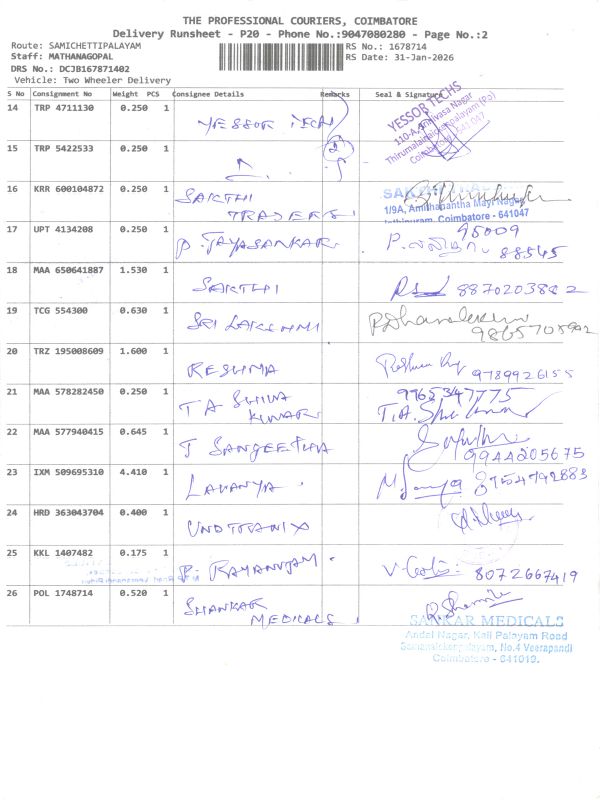 THE PROFESSIONAL COURIERS, COIMBATORE
Delivery Runsheet - P20 - Phone No.:9047080280 - Page No.:2
Route: SAMICHETTIPALAYAM
RS No.: 1678714
Staff: MATHANAGOPAL
RS Date: 31-Jan-2026
DRS No.: DCJB167871402
Vehicle: Two Wheeler Delivery
S No Consignment No Weight PCS Consignee Details Remarks Seal & Signature
14 TRP 4711130 0.250 1 YESSOR TECH
YESSOR TECHS
110-A, Annivasa Nagar
Coimbatore - 641 047
15 TRP 5422533 0.250 1 2
16 KRR 600104872 0.250 1 SAKTHI
TRADERS
1/9A, Amirthapantha Mayi Nagar
Coimbatore - 641047
17 UPT 4134208 0.250 1 P. JAYASANKAR 95009
88545
18 MAA 650641887 1.530 1 SAKTHI 8870203882
19 TCG 554300 0.630 1 SRI LAKSHMI
20 TRZ 195008609 1.600 1 RESHMA 9789926155
21 MAA 578282450 0.250 1 T A SHIVA
KUMAR
9965347775
22 MAA 577940415 0.645 1 T SANGEETHA
9944205675
23 IXM 509695310 4.410 1 LAVANYA 8754792883
24 HRD 363043704 0.400 1
25 KKL 1407482 0.175 1 8072667419
26 POL 1748714 0.520 1 SHANKAR
MEDICALS
SANKAR MEDICALS
Andal Nagar, Kali Palayam Road
No.4 Veerapandi
Coimbatore - 641019.